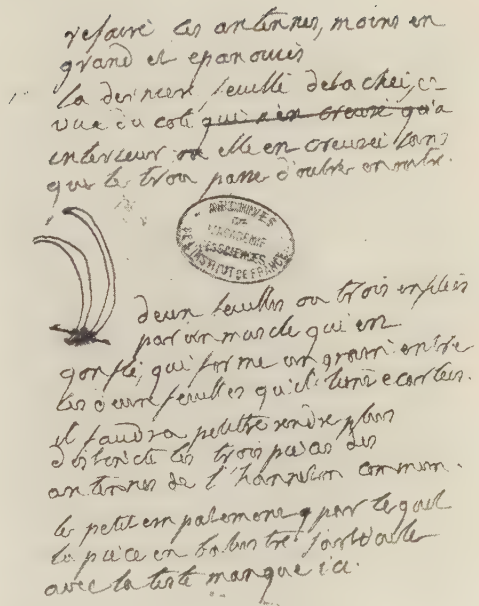 refaire les antennes, moins en
grand et epanouies
la derniere feuille detachée,
vue du coté qui s'en creuse qu'a
interieur ou elle en creusée sans
que le trou passe d'outre en outre.
ARCHIVES
DE
L'ACADEMIE
DES SCIENCES
DE L'INSTITUT DE FRANCE
deux feuilles ou trois enflées
par un muscle qui en
gonflé, qui forme un grain entre
les deux feuilles qu'il tient ecartées.
il faudra peutetre rendre plus
distincte les trois pieces des
antennes de l'hanneton commun.
le petit empatement par lequel
la piece en balustre
avec la teste manque ici.